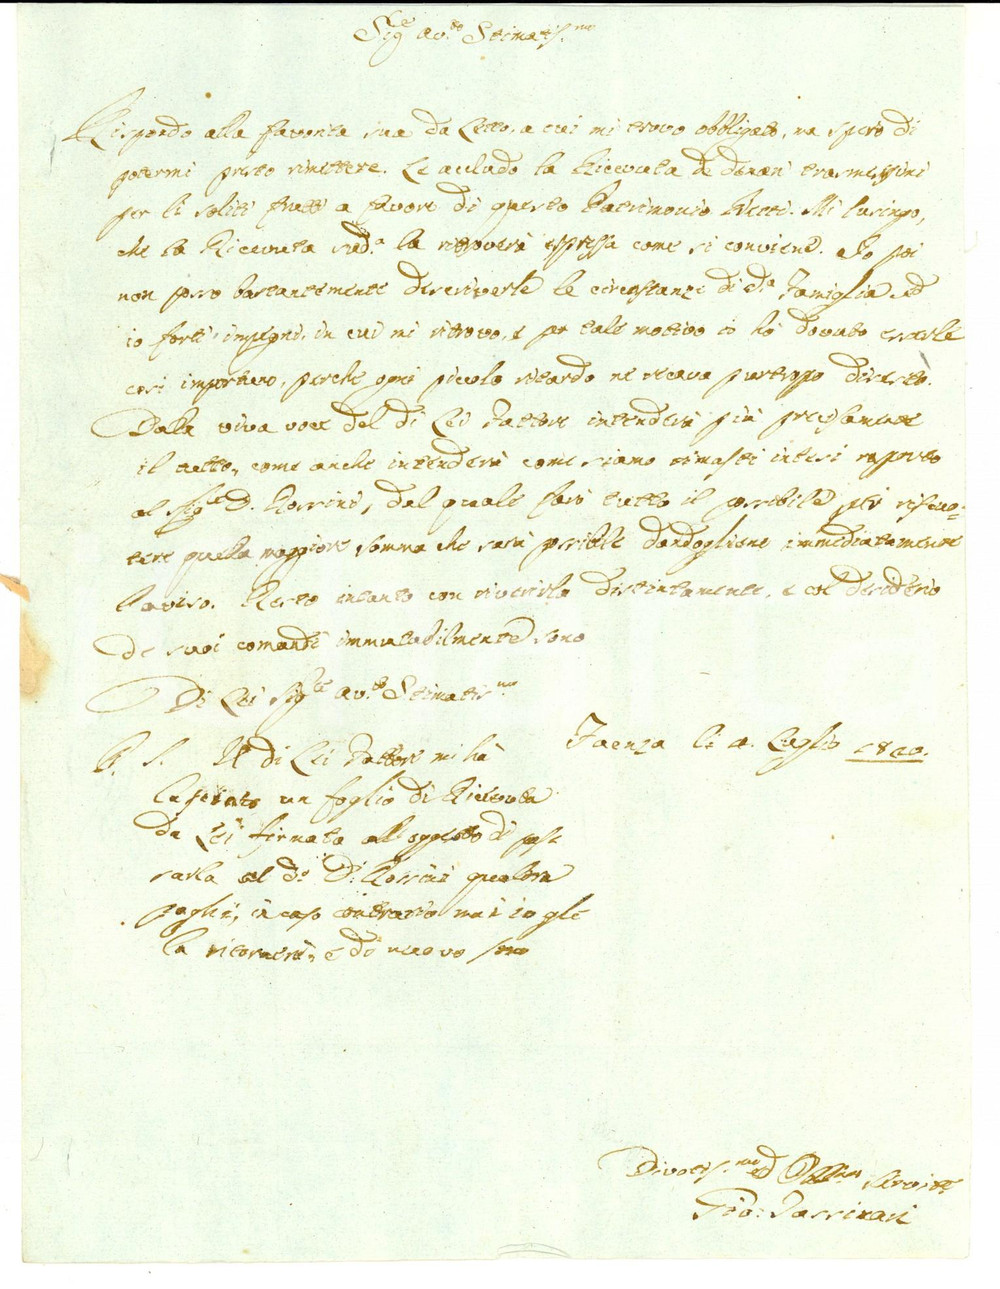 Sig.re Av.to Stimatis.mo
Rispondo alla favorita sua da Letto, a cui mi trovo obbligato, ma spero di
potermi presto rimettere. Le accludo la Ricevuta de denari trasmessimi
per li soliti frutti a favore di questo Patrimonio Ricci. Mi lusingo,
che la Ricevuta sud.a la ritroverà espressa come si conviene. Io poi
non posso bastantemente descriverle le circostanze di d.a Famiglia ed
io forti impegni, in cui mi ritrovo, e per tale motivo io hò dovuto esserle
così importuno, perche ogni piccolo ritardo ne recava purtroppo disesto.
Dalla viva voce del di Lei Fattore intenderà più precisamente
il tutto, come anche intenderà come siamo rimasti intesi rapporto
al Sig.re D. Rossini, dal quale farò tutto il possibile per riscuo-
tere quella maggiore somma che sarà possibile dandogliene immediatamente
l'aviso. Resto intanto con riverirla distintamente, e col desiderio
de suoi comandi immutabilmente sono
Di Lei Sig.re Av.to Stimatis.mo
Faenza li 4. Luglio 1820.
P. S. Il di Lei Fattore mi hà
lasciato un foglio di Ricevuta
da Lei firmata all'oggetto di pas
sarla al d.o D. Rossini qualora
paghi, in caso contrario io gle
la ritornerò, e di nuovo sono
Divotis.mo ed Obb.mo Servitore
Gio: Tassinari